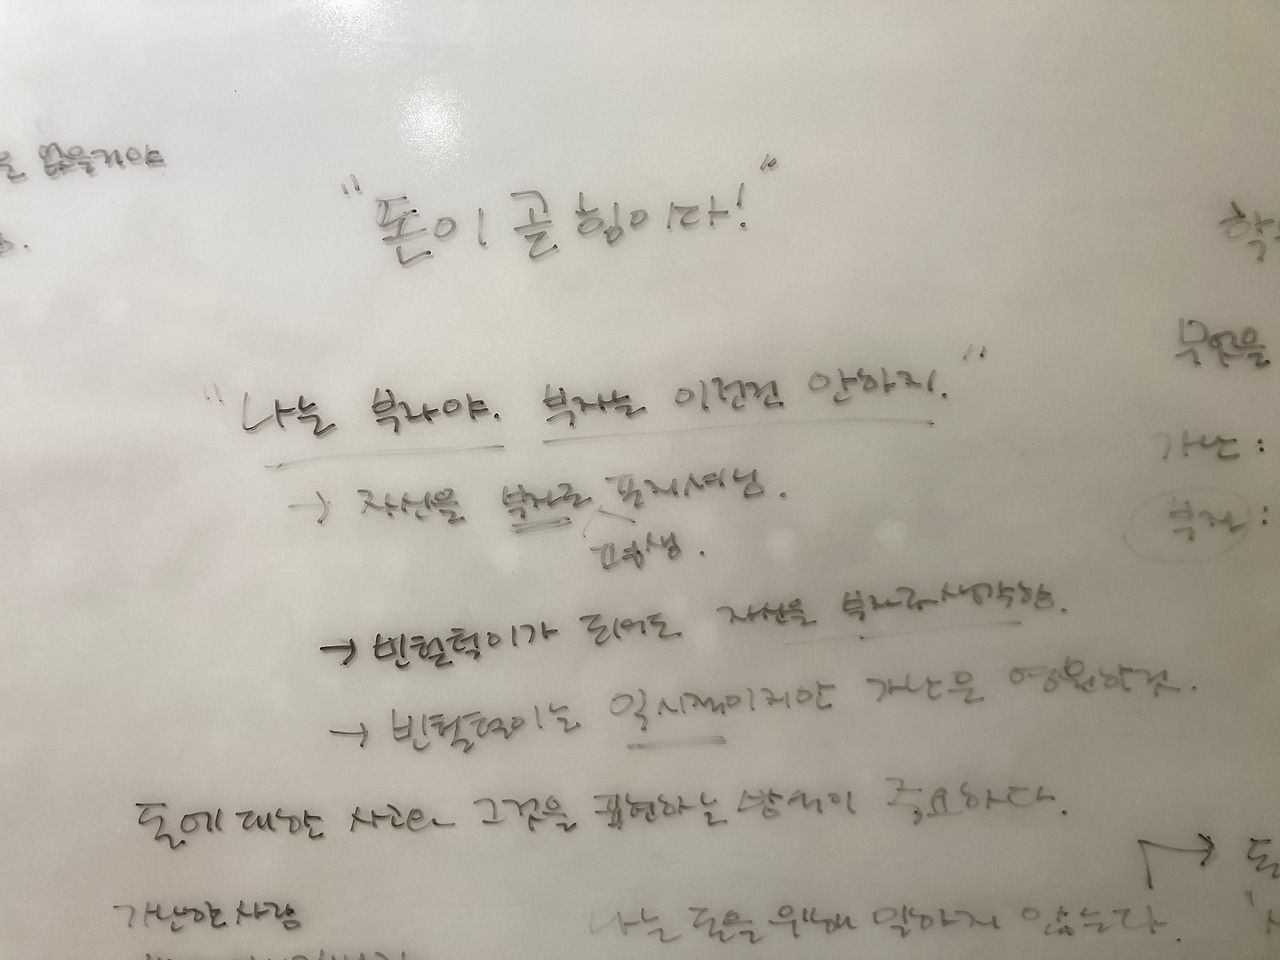 없을거야
"돈이 곧 힘이다!"
"나는 부자야. 부자는 이런건 안하지."
→ 자신을 부자로 표지셔닝.
평생.
→ 빈털턱이가 되어도 자신을 부자로 생각함.
→ 빈털턱이는 일시적이지만 가난은 영원한것.
돈에 대한 사고와 그것을 표현하는 방식이 중요하다.
가난한 사람
나는 돈을 위해 일하지 않는다.
무엇을
가난 :
부자 :